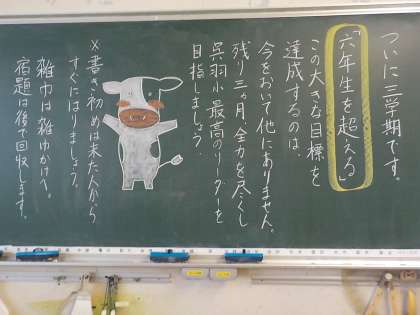 ついに三学期です。
「六年生を超える」
この大きな目標を
達成するのは、
今をおいて他にありません。
残り三ヵ月、全力を尽くし
呉羽小最高のリーダーを
目指しましょう。
※書き初めは来た人から
すぐにはりましょう。
雑巾は雑巾かけへ。
宿題は後で回収します。